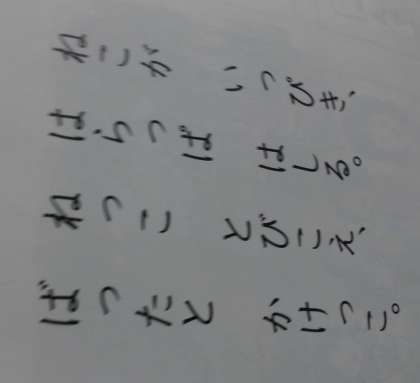 ねこが いっぴき、
はらっぱ はしる。
ねっこ とびこえ、
ばったと かけっこ。